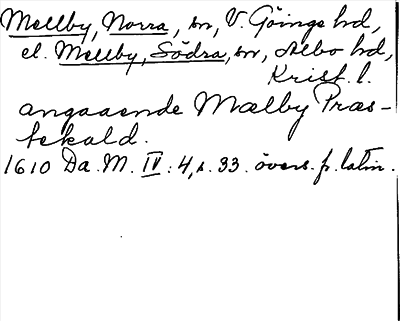 Mellby, Norra, sn, V. Göinge hd,
el. Mellby, Södra, sn, Albo hd,
Krist. l.
angaaende Mælby Præs-
tekald.
1610 Da. M. IV: 4, s. 33. övers. fr. latin.